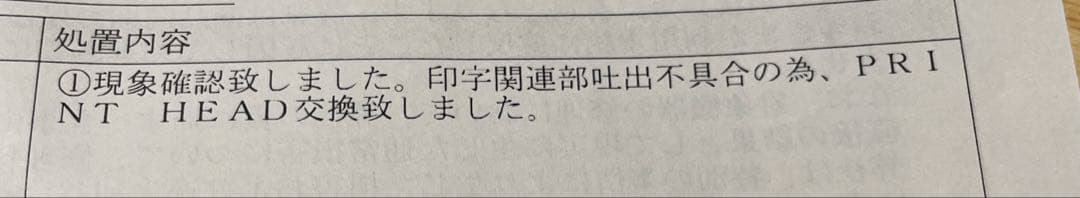 処置内容
①現象確認致しました。印字関連部吐出不具合の為、ＰＲＩ
ＮＴ　ＨＥＡＤ交換致しました。